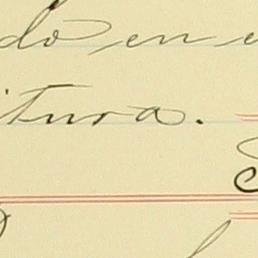 do en e
itura.